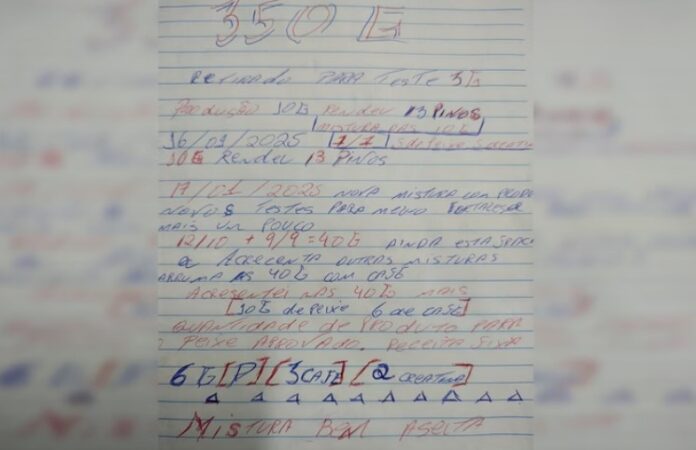 350 G
RETIRADO PARA TESTE 3G
PRODUÇÃO 10G RENDEU 13 PINOS
MISTURA DAS 10G
16/01/2025 [7/7]
10G RENDEU 13 PINOS
17/01/2025 NOVA MISTURA COM
NOVOS TESTES PARA
MAIS UM POUCO
12/10 + 9/9 = 40G AINDA ESTA
ACRECENTA OUTRAS MISTURAS
ARRUMA AS 40G COM CAFE
ACRESENTEI NAS 40G MAIS
[10G de PEIXE 6 de CAFE]
QUANTIDADE de PRODUTO PARA
PEIXE APROVADO. RECEITA
6G [P] [3CAFE] [2 CREATINA]
MISTURA BEM ASEITA